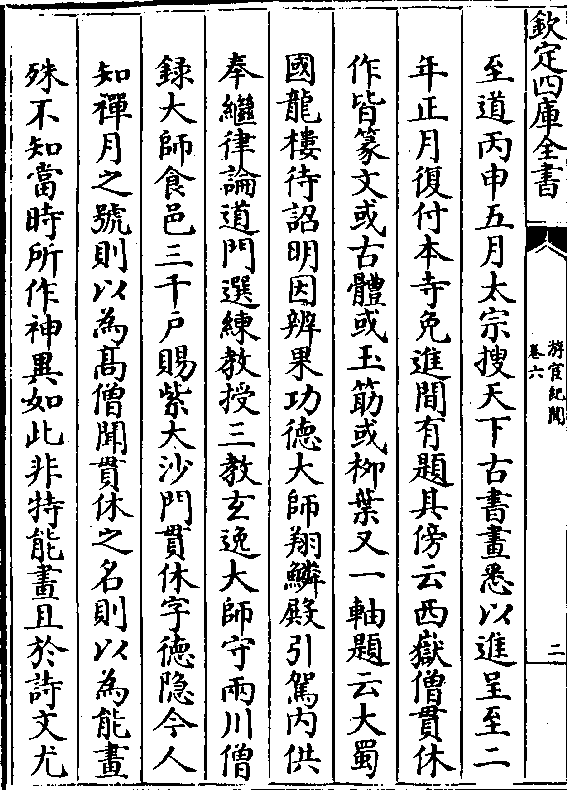 欽定四庫全書
游宦紀聞
卷六
二
至道丙申五月太宗搜天下古書畫悉以進呈至二
年正月復付本寺免進間有題其傍云西嶽僧貫休
作皆篆文或古體或玉筋或栁葉又一軸題云大蜀
國龍樓待詔明因辨果功德大師翔鱗殿引駕內供
奉繼律論道門選練教授三教玄逸大師守兩川僧
録大師食邑三千戸賜紫大沙門貫休字徳隐今人
知禪月之號則以為髙僧聞貫休之名則以為能畫
殊不知當時所作神異如此非特能畫且於詩文尤